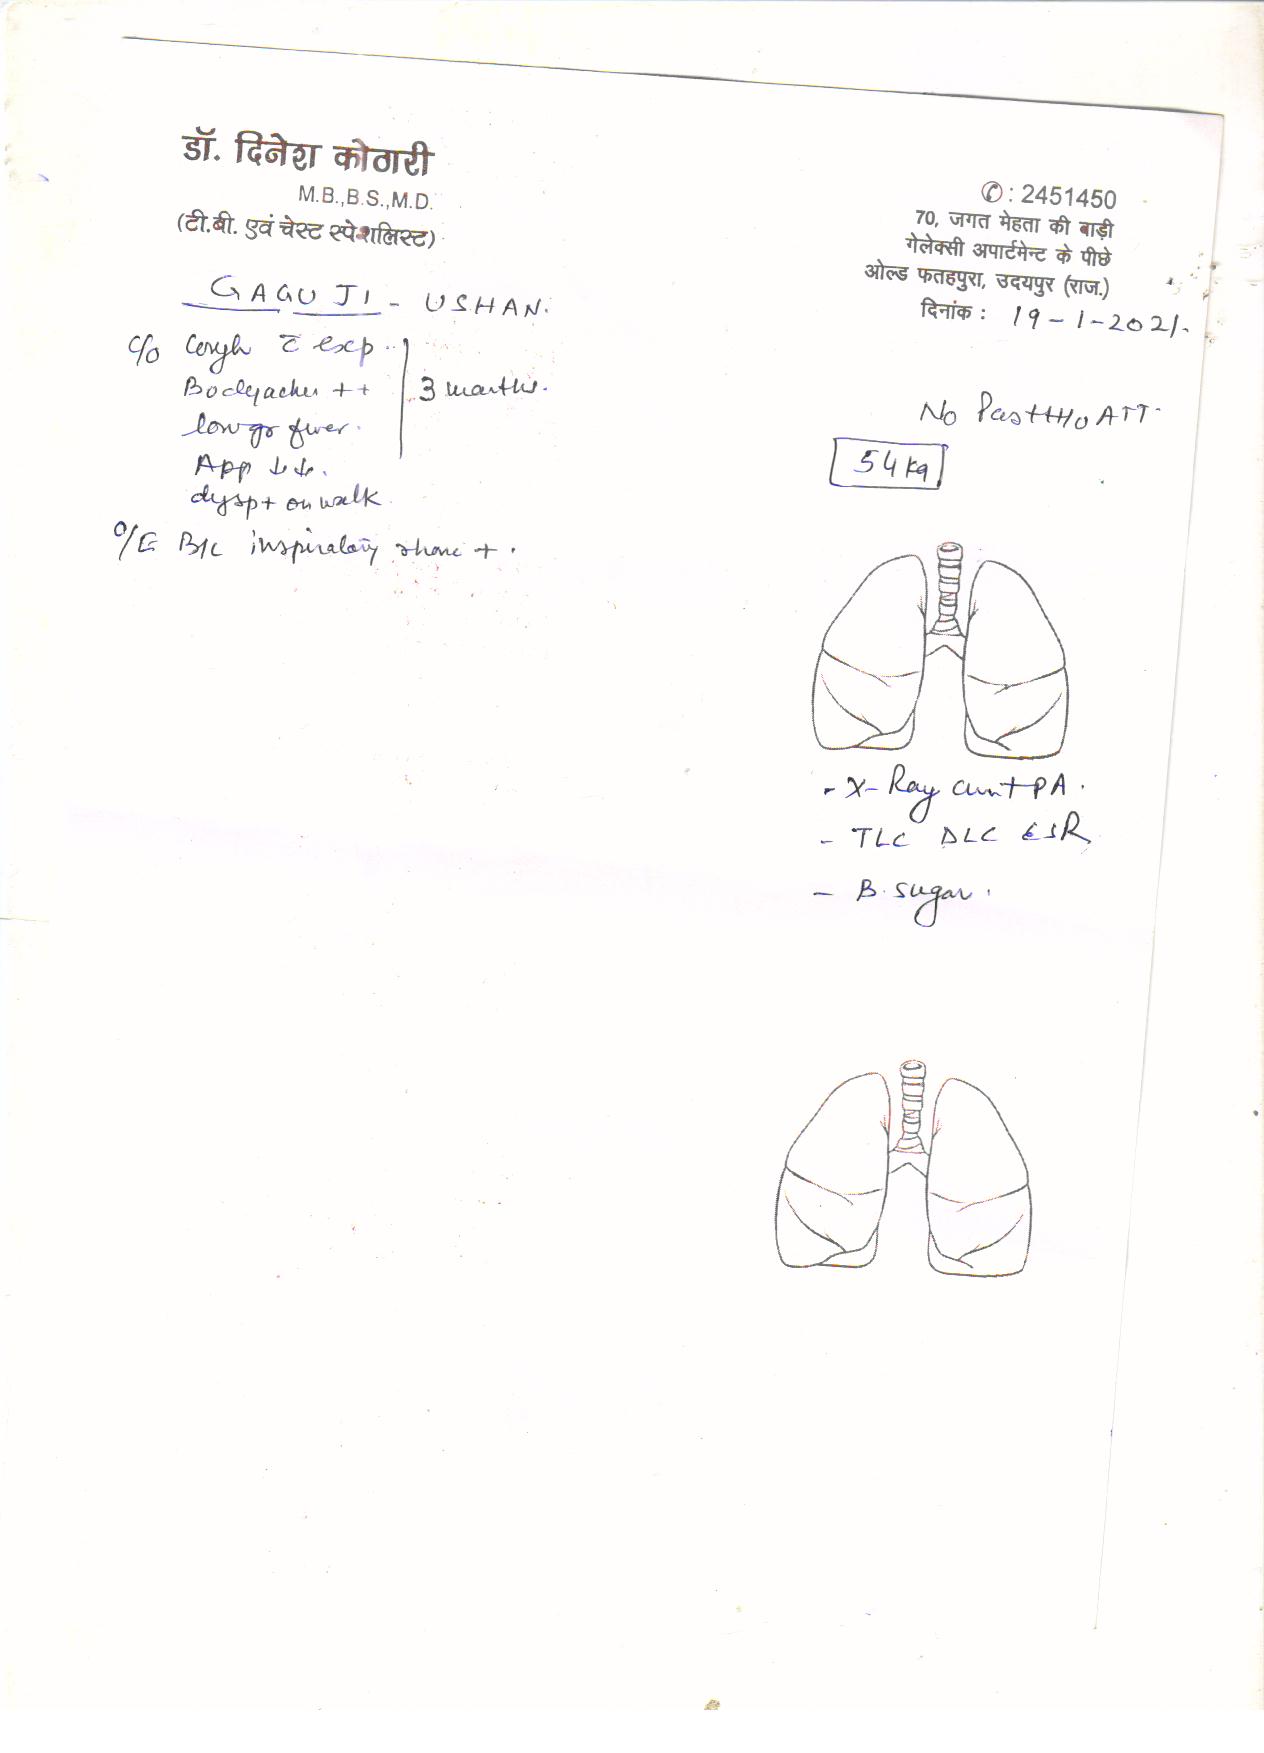 डॉ. दिनेश कोठारी
M.B.,B.S.,M.D.
(टी.बी. एवं चेस्ट स्पेशलिस्ट)
✆ : 2451450
70, जगत मेहता की बाड़ी
गेलेक्सी अपार्टमेन्ट के पीछे
ओल्ड फतहपुरा, उदयपुर (राज.)
दिनांक : 19-1-2021.
GAGU JI - USHAN.
C/O Cough c̄ exp.
Bodyaches ++ 3 months.
low gr fever.
App ↓↓.
dysp+ on walk.
No Past H/O ATT.
54 kg
O/E B/L inspiratory +.
- X-Ray PA.
- TLC DLC ESR
- B. sugar.